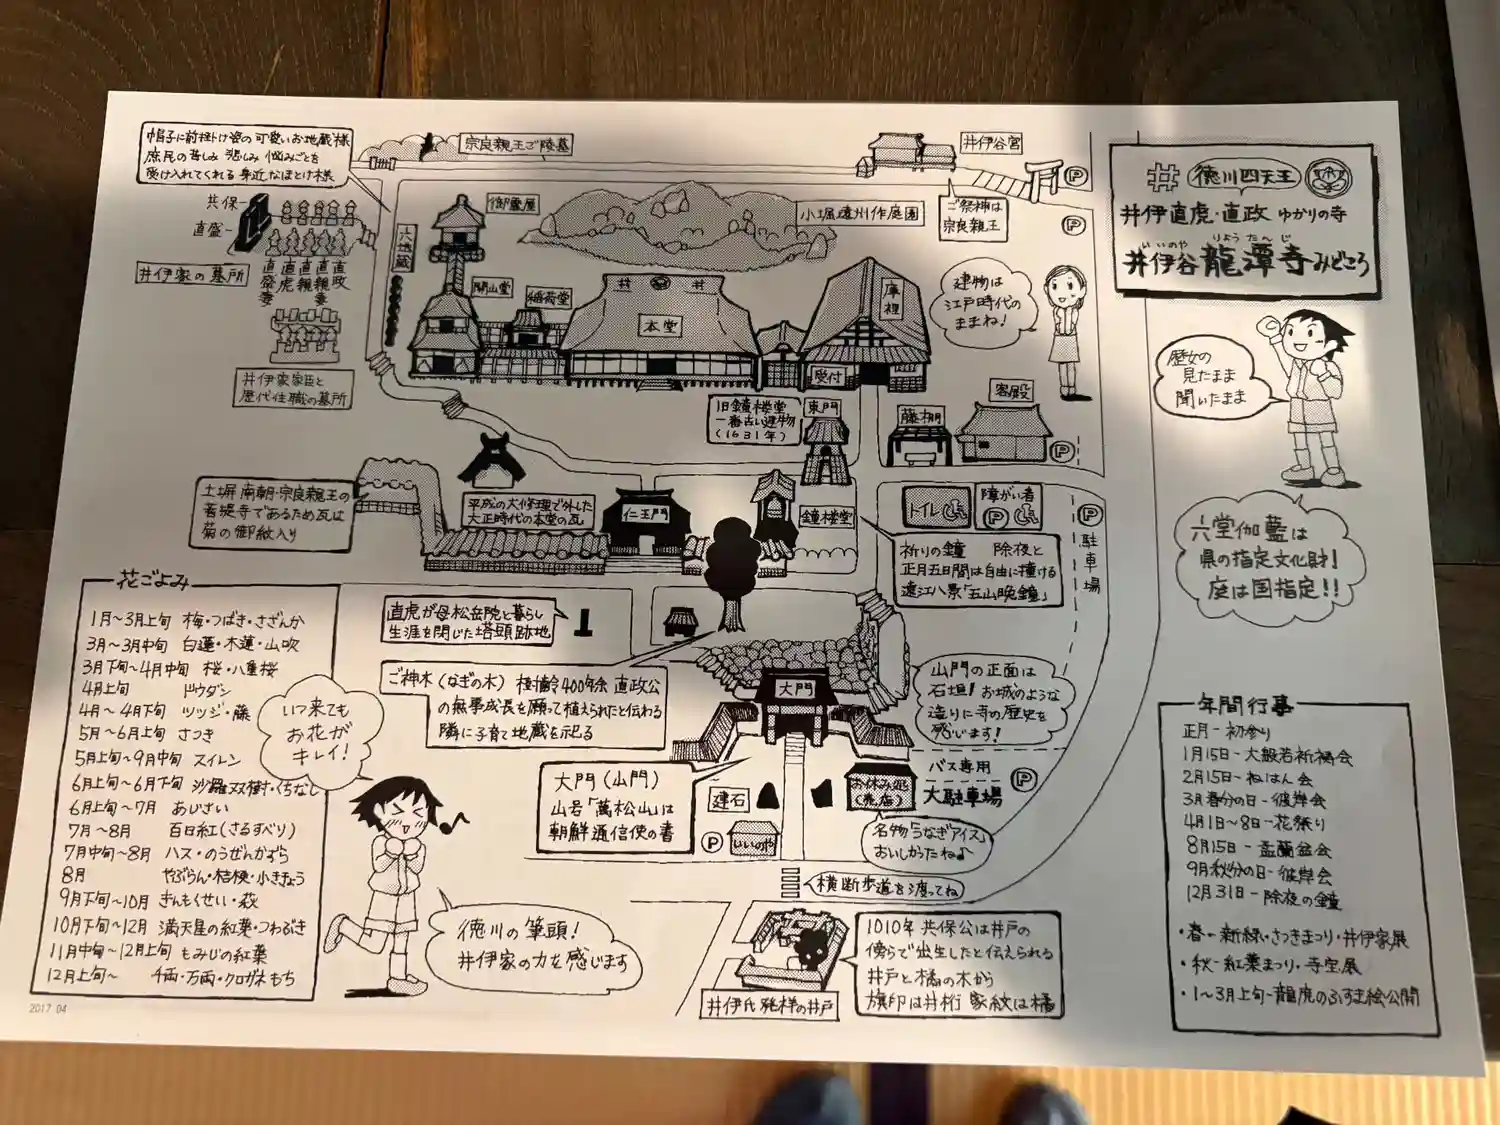 井
徳川四天王
井伊直虎・直政 ゆかりの寺
いいのや りょうたんじ
井伊谷 龍潭寺 みどころ
歴女の
見たまま
聞いたまま
六堂伽藍は
県の指定文化財!
庭は国指定!!
帽子に前掛け姿の可愛いお地蔵様
庶民の苦しみ 悲しみ 悩みごとを
受け入れてくれる 身近なほとけ様
宗良親王ご陵墓
井伊谷宮
P
ご祭神は
宗良親王
P
共保
直盛
井伊家の墓所
直盛妻
直虎
直親
直親妻
直政
井伊家家臣と
歴代住職の墓所
六地蔵
御霊屋
開山堂
稲荷堂
小堀遠州作庭園
井 井
本堂
庫裡
受付
建物は
江戸時代の
ままね!
旧鐘楼堂
一番古い建物
(1631年)
東門
藤棚
客殿
P
土塀 南朝・宗良親王の
菩提寺であるため瓦は
菊の御紋入り
平成の大修理で外した
大正時代の本堂の瓦
仁王門
鐘楼堂
トイレ
障がい者
P
P
駐車場
祈りの鐘 除夜と
正月五日間は自由に撞ける
遠江八景「五山晩鐘」
直虎が母松岳院と暮らし
生涯を閉じた塔頭跡地
ご神木(なぎの木) 樹齢400年余 直政公
の無事成長を願って植えられたと伝わる
隣に子育て地蔵を祀る
大門
山門の正面は
石垣! お城のような
造りに寺の歴史を
感じます!
大門(山門)
山号「萬松山」は
朝鮮通信使の書
建石
P
いいのや
お休み処
(売店)
バス専用
大駐車場
P
名物「うなぎアイス」
おいしかったねぇ
横断歩道を渡ってね
井伊氏発祥の井戸
1010年 共保公は井戸の
傍らで出生したと伝えられる
井戸と橘の木から
旗印は井桁 家紋は橘
花ごよみ
1月〜3月上旬 梅・つばき・さざんか
3月〜3月中旬 白蓮・木蓮・山吹
3月下旬〜4月中旬 桜・八重桜
4月上旬 ドウダン
4月〜4月下旬 ツツジ・藤
5月〜6月上旬 さつき
5月上旬〜9月中旬 スイレン
6月上旬〜6月下旬 沙羅双樹・くちなし
6月上旬〜7月 あじさい
7月〜8月 百日紅(さるすべり)
7月中旬〜8月 ハス・のうぜんかずら
8月 やぶらん・桔梗・小ききょう
9月下旬〜10月 きんもくせい・萩
10月下旬〜12月 満天星の紅葉・つわぶき
11月中旬〜12月上旬 もみじの紅葉
12月上旬〜 千両・万両・クロガネもち
いつ来ても
お花が
キレイ!
徳川の筆頭!
井伊家の力を感じます
年間行事
正月-初参り
1月15日-大般若祈祷会
2月15日-ねはん会
3月春分の日-彼岸会
4月1日〜8日-花祭り
8月15日-盂蘭盆会
9月秋分の日-彼岸会
12月31日-除夜の鐘
・春-新緑・さつきまつり・井伊家展
・秋-紅葉まつり・寺宝展
・1〜3月上旬-龍虎のふすま絵公開
2017.04